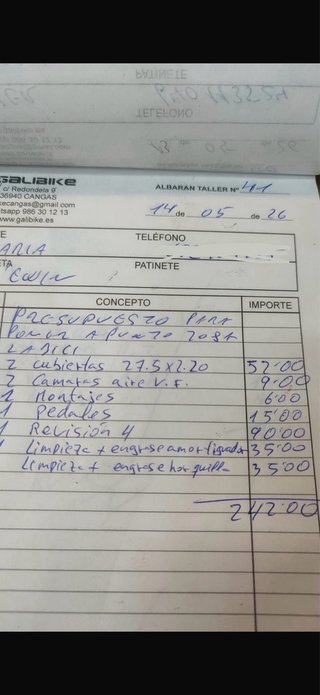 PATINETE
TELÉFONO
GALIBIKE
c/ Redondela 9
36940 CANGAS
kecangas@gmail.com
tsapp 986 30 12 13
www.galibike.es
ALBARÁN TALLER Nº 41
14 de 05 de 26
TELÉFONO
ARIA
PATINETE
CONCEPTO IMPORTE
PRESUPUESTO PARA
PONER A PUNTO TODA
LA BICI
2 cubiertas 27.5x2.20 52'00
2 Camaras aire V.F. 9'00
2 Montajes 6'00
1 Pedales 15'00
1 Revisión 4 90'00
1 Limpieza + engrase amortiguador 35'00
Limpieza + engrase horquilla 35'00
242'00